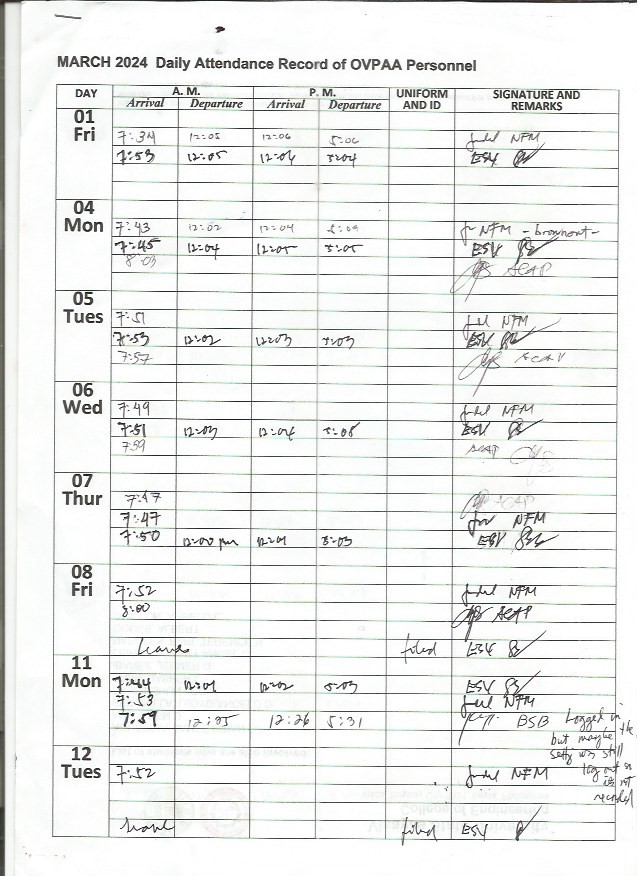 MARCH 2024 Daily Attendance Record of OVPAA Personnel
DAY A. M. P. M. UNIFORM AND ID SIGNATURE AND REMARKS
Arrival Departure Arrival Departure
01 Fri
7:34 12:05 12:06 5:06 NFM
7:53 12:05 12:06 5:04 ESV
04 Mon
7:43 12:02 12:04 5:09 NFM - brownout -
7:45 12:04 12:05 5:05 ESV
8:03 ACAP
05 Tues
7:51 NFM
7:53 12:02 12:03 5:03 ESV
7:57 ACAP
06 Wed
7:49 NFM
7:51 12:03 12:04 5:08 ESV
7:59 ACAP
07 Thur
7:47 ACAP
7:47 NFM
7:50 12:00 pm 12:01 5:03 ESV
08 Fri
7:52 NFM
8:00 ACAP
leave filed ESV
11 Mon
7:44 12:01 12:02 5:03 ESV
7:53 NFM
7:59 12:25 12:26 5:31 BSB Logged in
but maybe the
was still
log out so
is not
recorded
12 Tues
7:52 NFM
leave filed ESV